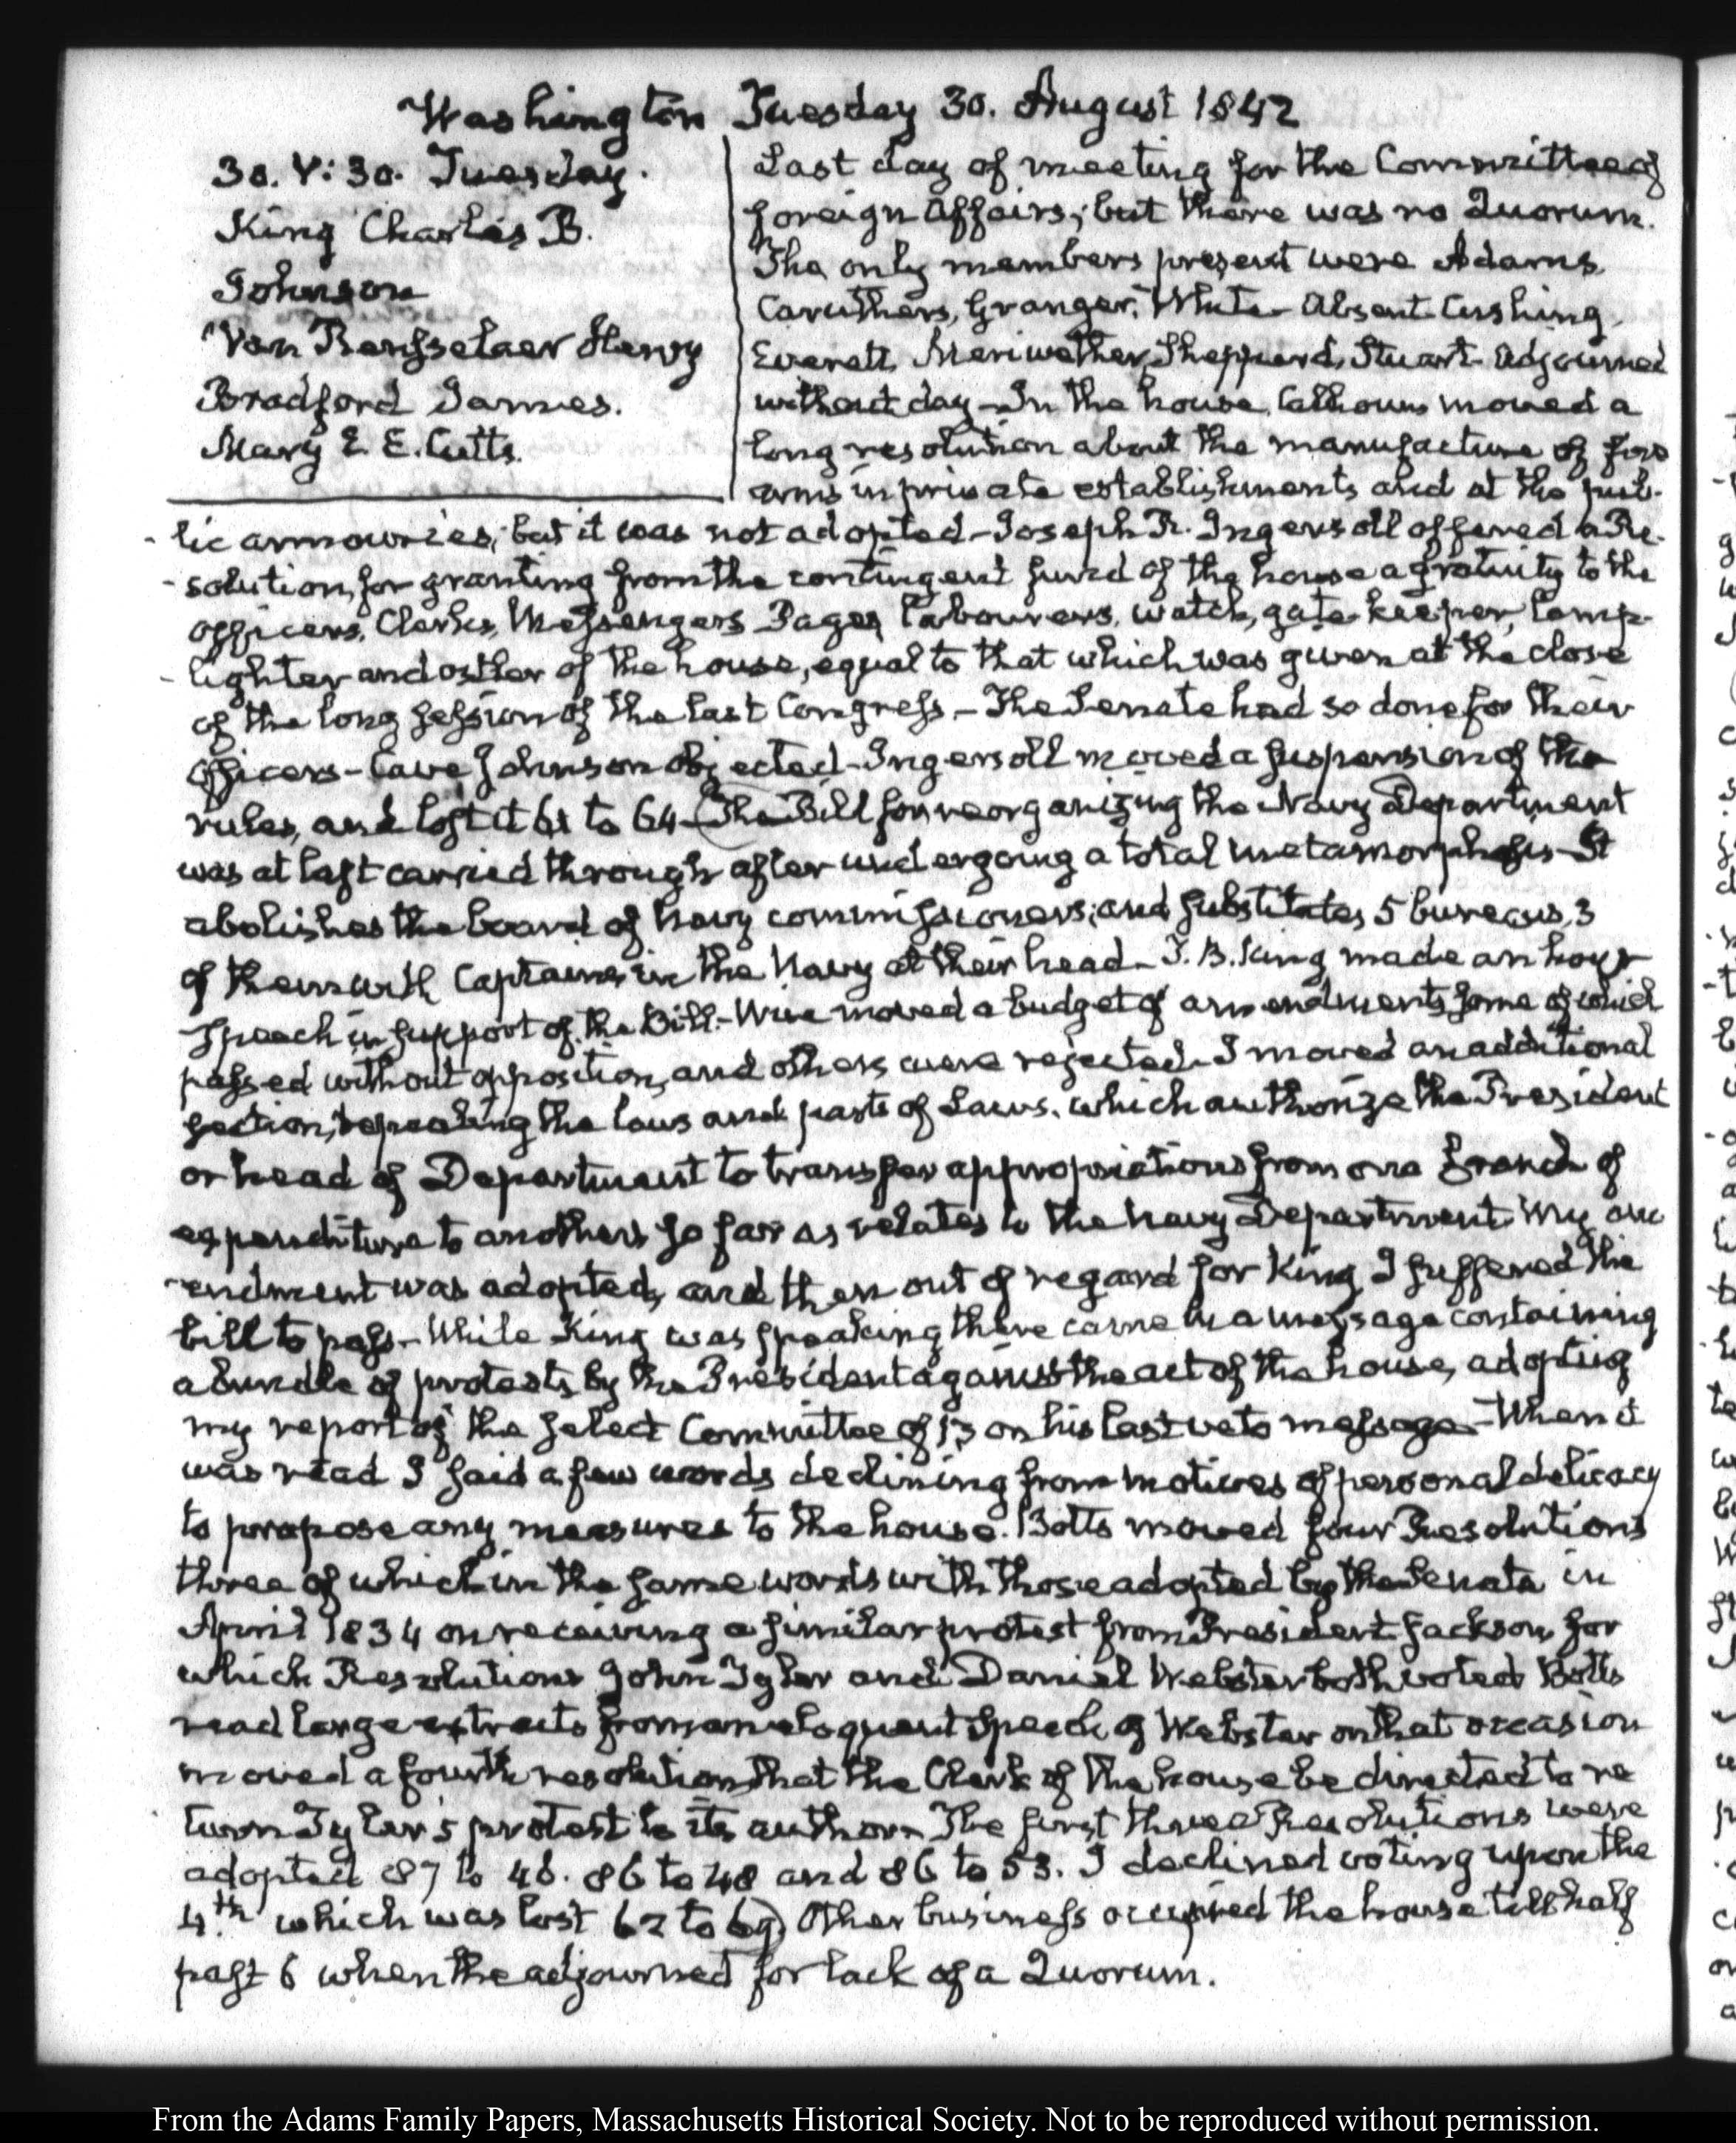 Washington Tuesday 30. August 1842
30. V: 30. Tuesday.
King Charles B.
Johnson
Van Rensselaer Henry
Bradford James.
Mary E. E. Cutts.
Last day of meeting for the Committee of
foreign Affairs; but there was no Quorum.
The only members present were Adams,
Caruthers, Granger, White - Absent Cushing,
Everett, Meriwether, Shepperd, Stuart - Adjourned
without day - In the house, Calhoun moved a
long resolution about the manufacture of fire
arms in private establishments and at the pub-
-lic armouries; but it was not adopted - Joseph R. Ingersoll offered a Re-
-solution, for granting from the contingent fund of the house a gratuity to the
officers, Clerks, Messengers Pages, labourers, watch, gate-keeper, lamp-
-lighter and ostler of the house, equal to that which was given at the close
of the long session of the last Congress. - The Senate had so done for their
Officers - Cave Johnson objected - Ingersoll moved a suspension of the
rules, and lost it 61 to 64 - The Bill for reorganizing the Navy Department
was at last carried through after undergoing a total metamorphosis - It
abolishes the board of Navy commissioners; and substitutes 5 bureaus, 3
of them with Captains in the Navy at their head - T. B. King made an hour
speech in support of the Bill. - Wise moved a budget of amendments some of which
passed without opposition, and others were rejected - I moved an additional
section, repealing the laws and parts of Laws, which authorize the President
or head of Department to transfer appropriations from one branch of
expenditure to another, so far as relates to the Navy Department. My am
-endment was adopted, and then out of regard for King, I suffered the
bill to pass - While King was speaking there came in a message containing
a bundle of protests by the President against the act of the house, adopting
my report of the select Committee of 13 on his last veto message - When it
was read I said a few words declining from motives of personal delicacy
to propose any measures to the house. Botts moved four Resolutions
three of which in the same words with those adopted by the Senate in
April 1834 on receiving a similar protest from President Jackson, for
which Resolutions John Tyler and Daniel Webster both voted Botts
read large extracts from an eloquent speech of Webster on that occasion
moved a fourth resolution, that the Clerk of the house be directed to re
turn Tyler's protest to its author - The first three Resolutions were
adopted 87 to 46. 86 to 48 and 86 to 53. I declined voting upon the
4.th which was lost 62 to 69) Other business occupied the house till half
past 6 when the adjourned for lack of a Quorum.
From the Adams Family Papers, Massachusetts Historical Society. Not to be reproduced without permission.